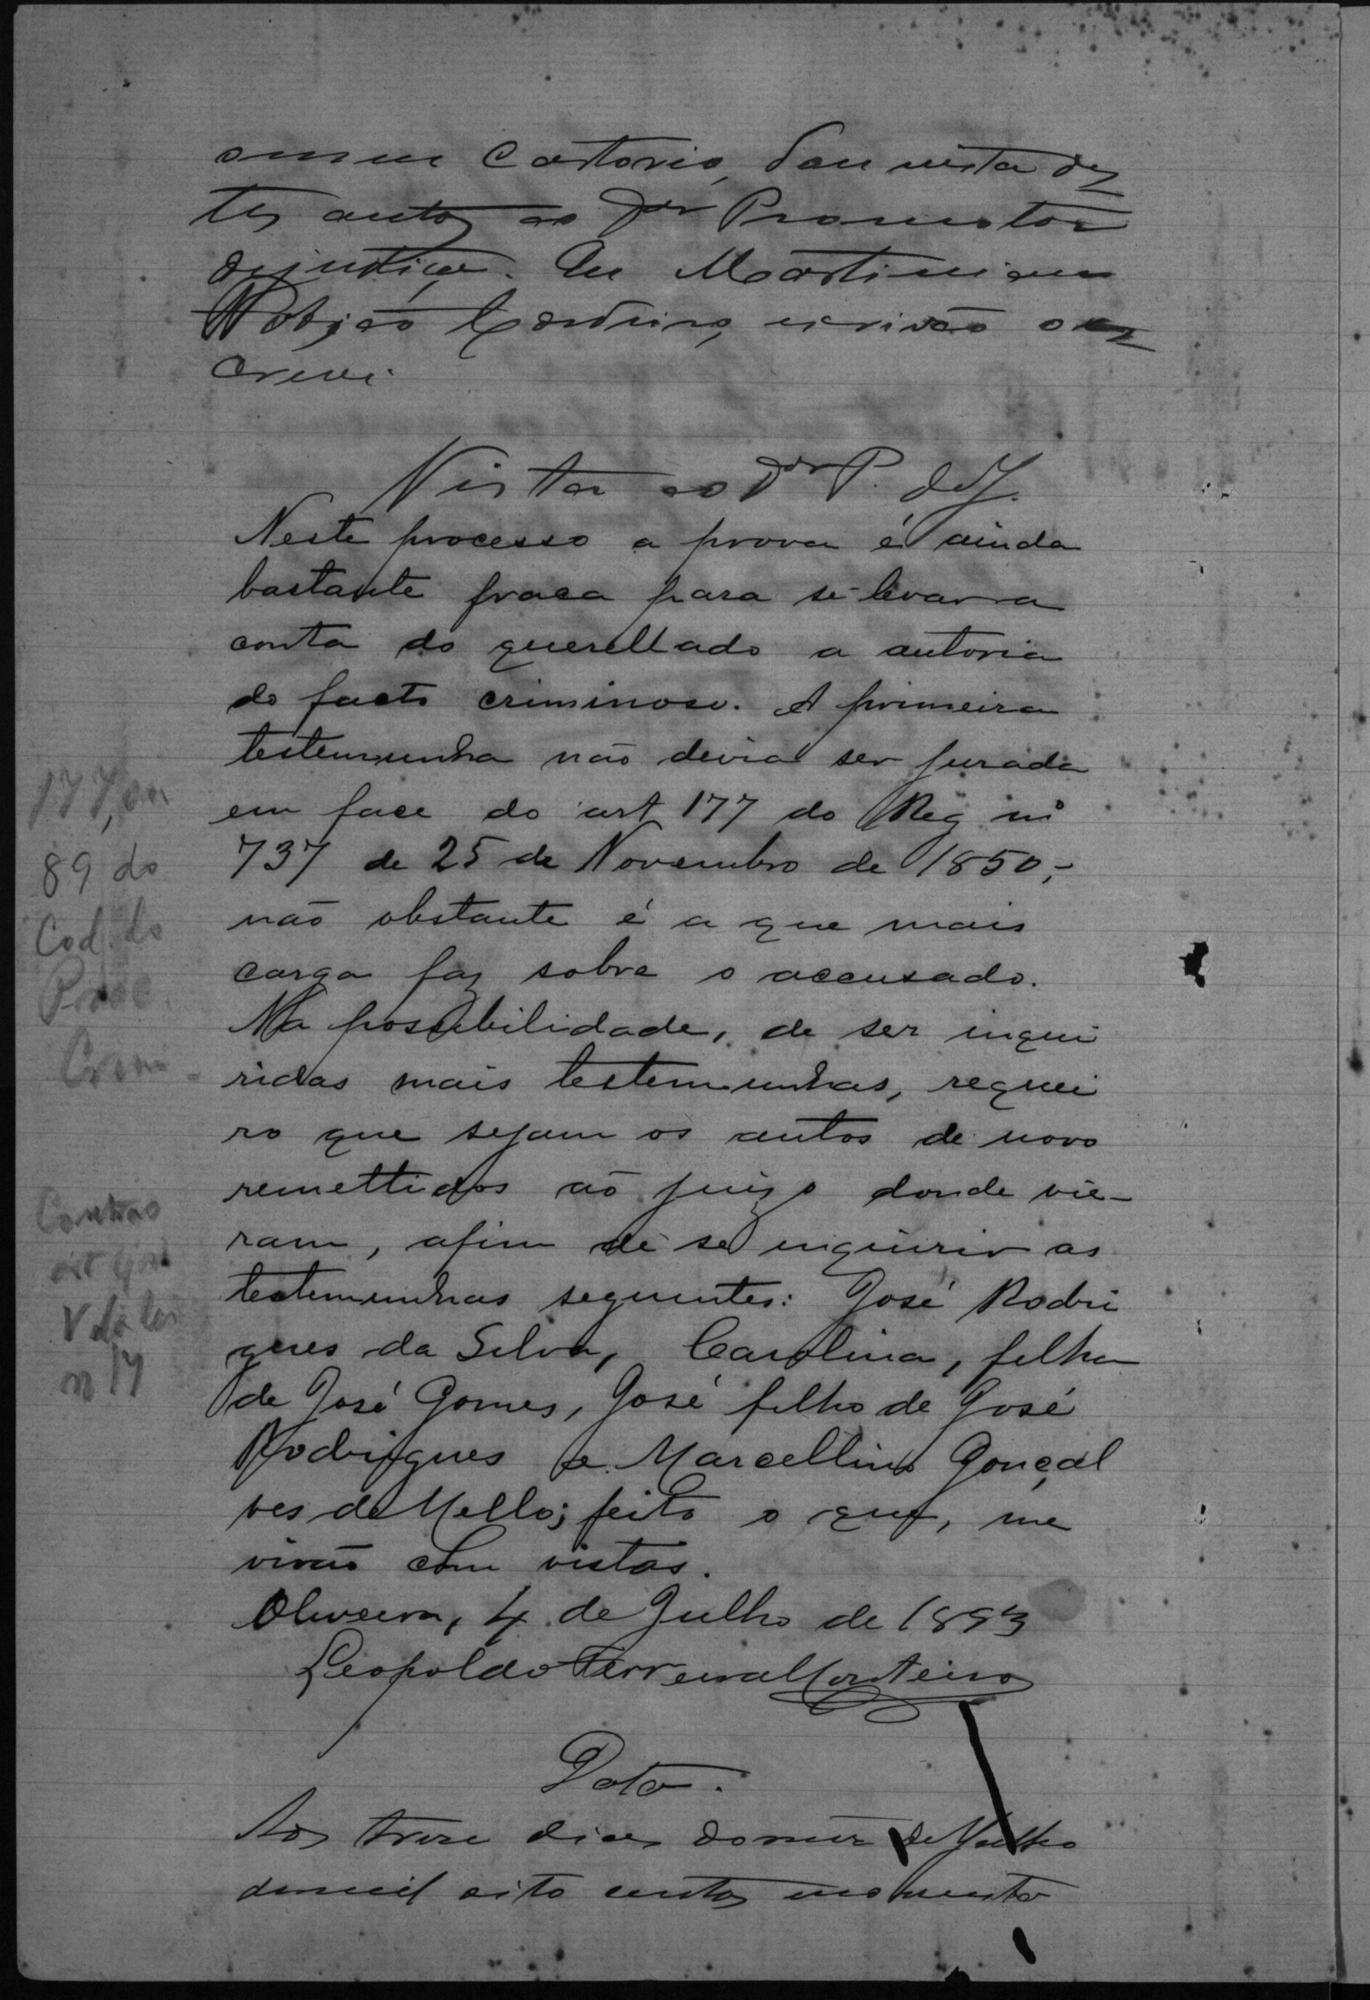 em meu Cartorio, dou vista des
tes autos ao Dor Promotor
de justiça. Eu Martiniano
Cordeiro, escrivão o es
crevi.
Vista ao Dor P. de J.
Neste processo a prova é ainda
bastante fraca para se levar a
conta do querellado a autoria
do facto criminoso. A primeira
testemunha não devia ser jurada
em face do art 177 do Reg nº
737 de 25 de Novembro de 1850;
não obstante é a que mais
carga faz sobre o accusado.
Na possibilidade, de ser inqui
ridas mais testemunhas, requei
ro que sejam os autos de novo
remettidos ao juizo donde vie-
ram, afim de se inquirir as
testemunhas seguintes: José Rodri
gues da Silva, Carolina, filha
de José Gomes, José filho de José
Rodrigues e Marcellino Gonçal
ves de Mello; feito o que, me
virão com vistas.
Oliveira, 4 de Julho de 1893
Leopoldo Ferreira Monteiro
Data.
Aos treze dias do mez de Julho
de mil oito centos noventa
177, ou
89 do
Cod. do
Proc.
Crim.
Contra o
art
V da lei
n 17